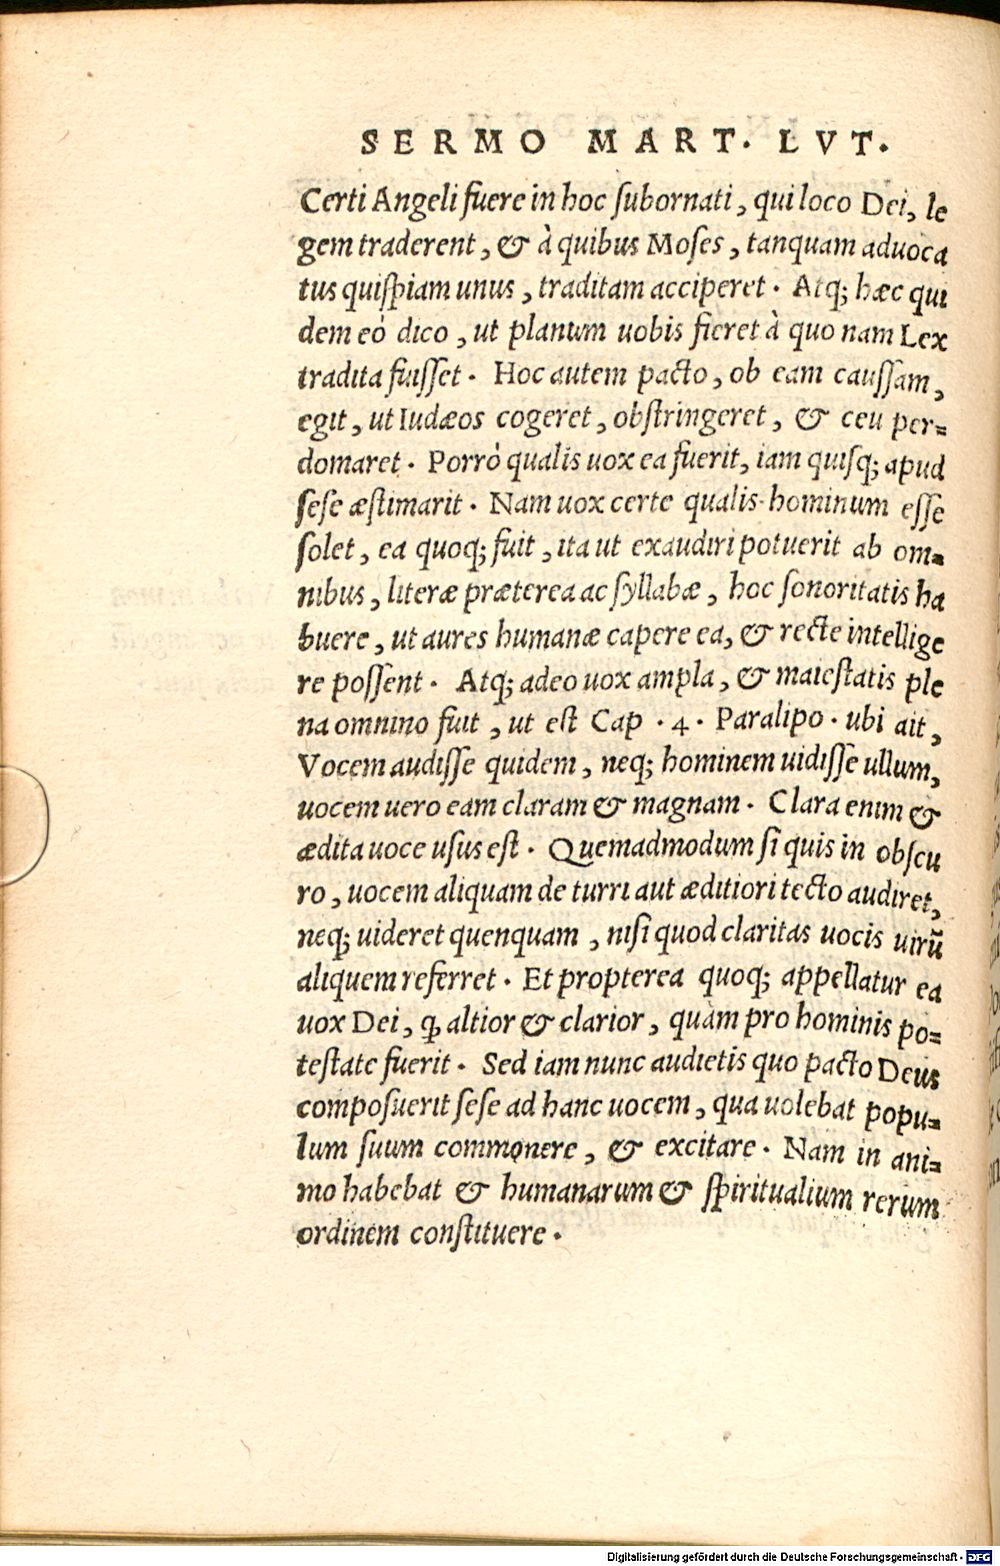 SERMO MART. LVT.
Certi Angeli fuere in hoc ſubornati, qui loco Dei, le
gem traderent, & à quibus Moſes, tanquam aduoca
tus quiſpiam unus, traditam acciperet. Atq; hæc qui
dem eò dico, ut planum uobis fieret à quo nam Lex
tradita fuiſſet. Hoc autem pacto, ob eam cauſſam,
egit, ut Iudæos cogeret, obſtringeret, & ceu per-
domaret. Porrò qualis uox ea fuerit, iam quiſq; apud
ſeſe æſtimarit. Nam uox certe qualis hominum eſſe
ſolet, ea quoq; fuit, ita ut exaudiri potuerit ab om-
nibus, literæ præterea ac ſyllabæ, hoc ſonoritatis ha
buere, ut aures humanæ capere ea, & recte intellige
re poſſent. Atq; adeo uox ampla, & maieſtatis ple
na omnino fuit, ut eſt Cap. 4. Paralipo. ubi ait,
Vocem audiſſe quidem, neq; hominem uidiſſe ullum,
uocem uero eam claram & magnam. Clara enim &
ædita uoce uſus eſt. Quemadmodum ſi quis in obſcu
ro, uocem aliquam de turri aut æditiori tecto audiret,
neq; uideret quenquam, niſi quod claritas uocis uirũ
aliquem referret. Et propterea quoq; appellatur ea
uox Dei, ꝙ altior & clarior, quàm pro hominis po-
teſtate fuerit. Sed iam nunc audietis quo pacto Deus
compoſuerit ſeſe ad hanc uocem, qua uolebat popu-
lum ſuum commonere, & excitare. Nam in ani-
mo habebat & humanarum & ſpiritualium rerum
ordinem conſtituere.
Digitalisierung gefördert durch die Deutsche Forschungsgemeinschaft - DFG